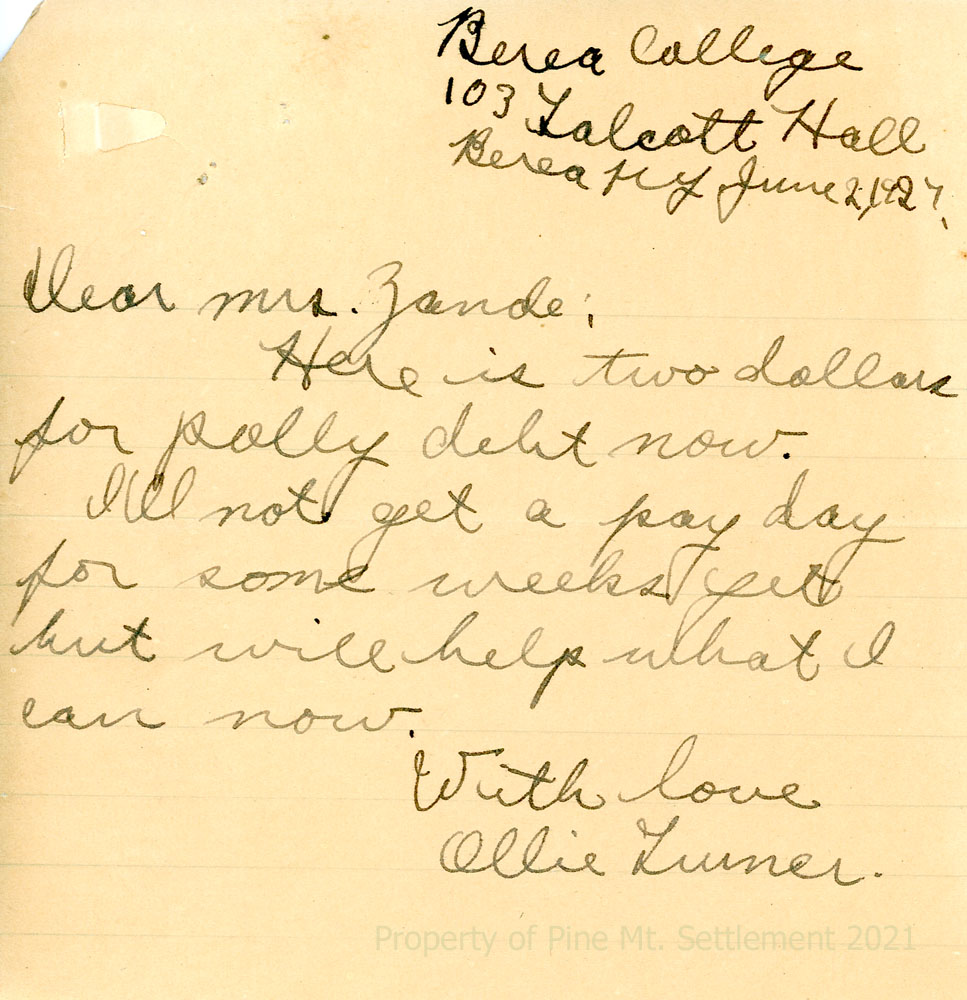 Berea College
103 Talcott Hall
Berea Ky June 2, 1927.
Dear mrs. Zande:
Here is two dollars
for polly debt now.
I'll not get a pay day
for some weeks yet
but will help what I
can now.
With love
Ollie Turner.
Property of Pine Mt. Settlement 2021